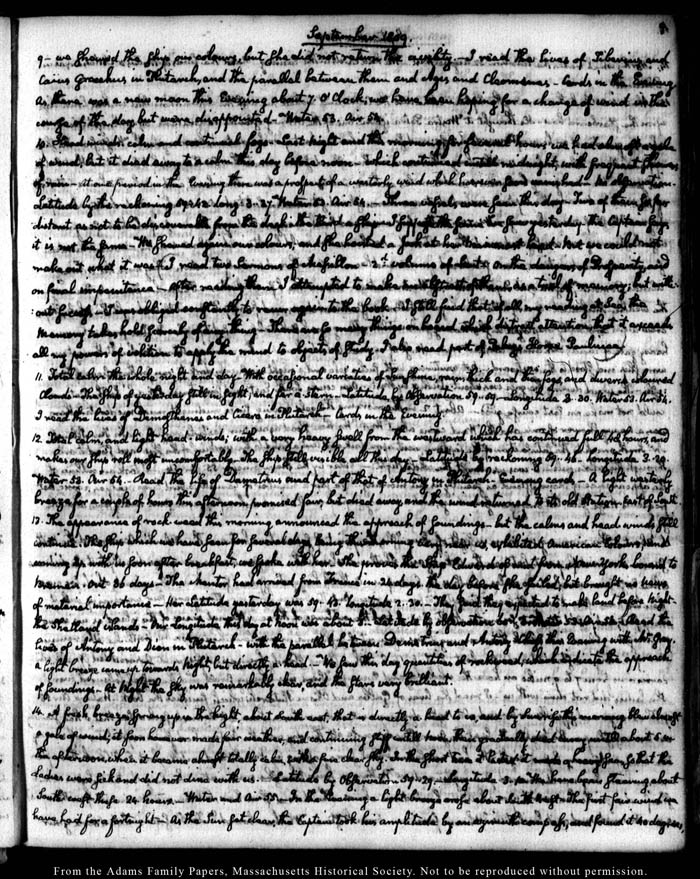 September 1809.
9 - we shewed the Ship our colours, but she did not return the civility - I read the lives of Tiberius and
Caius Gracchus in Plutarch, and the parallel between them and Agis and Cleomenes - Cards in the Evening
As there was a new moon this Evening about 7. O'Clock, we have been hoping for a change of wind in the
course of the day but were disappointed - Water 53. Air 54.
10. Head winds, calm and continual fogs - Last night and this morning for several hours, we had also
of wind, but it died away to a calm this day before noon - which continued until midnight, with frequent showers
of rain - At one period in the Evening there was a prospect of a westerly wind which however soon vanished - No observation.
Latitude by the reckoning 59-42. Long: 3-27. Water 53. Air 54. - Three vessels were seen this day - Two of them so far
distant as not to be discoverable from the deck; the third a Ship
it is not the same - We shewed again our colours, and she hoisted a Jack at her mast head. But we could not
make out what it was. I read two Sermons of Massillon - 2d. volume of On the dangers of Prosperity, and
on final impenitence - After reading them I attempted to make an abstract of them, as a task of memory; but with-
out success - I was obliged constantly to recur again to the book. I still find that of all my reading at Sea, the
Memory takes hold scarcely of any thing - There are so many things on board which distract attention, that it exceeds
all my powers of volition to apply the mind to objects of Study. I also read part of Paley's Horae Paulinae.
11. Total calm the whole night and day. With occasional varieties of Sunshine, rain, thick and thin fogs, and divers coloured
Clouds - The Ship of yesterday still in sight, and far a-stern - Latitude by Observation 59-09. - Longitude 3-30. Water 53. Air 54.
I read the lives of Demosthenes and Cicero in Plutarch - Cards in the Evening.
12. Total calm, and light head-winds; with a very heavy swell from the westward which has continued full 48 hours, and
makes our Ship roll most uncomfortably. The Ship still visible all this day - Latitude by reckoning 59-45. Longitude 3-20.
Water 53. Air 54. - Read the life of Demetrius and part of that of Antony in Plutarch - Evening cards - A light westerly
breeze for a couple of hours this afternoon promised fair, but died away and the wind returned to its old Station East of South
13. The appearance of rock-weed this morning announced the approach of Soundings - but the calms and head winds still
continue. The Ship which we have seen for several days being this morning very near us, exhibited American Colours, and
coming up with us soon after breakfast, we spoke with her. She proves the Ship Edward of and from New York bound to
Out 36 days - The had arrived from France in 26 days the day before she sailed, but brought no News
of material importance - Her Latitude yesterday was 59-43. Longitude 2-30. - They said they expected to make land before Night -
the Shetland islands - Our Longitude this day at Noon was about 3. Latitude by observation Water 53. Air 54. Read the
lives of Antony and Dion in Plutarch - with the parallel between Demetrius and Antony. this Evening with Mr. Gray.
a light breeze came up towards Night, but directly a-head. - We saw this day quantities of rockweed, which indicate the approach
of Soundings. At Night the Sky was remarkably clear, and the Stars very brilliant.
14. A fresh breeze sprung up in the Night, about South east, that is directly a head to us, and by Sunrise this morning blew almost
a gale of wind; it soon however made fair weather, and continuing stiff until noon, then gradually died away until about 5 in
the afternoon when it became almost totally calm, with a fine clear sky. In the short time it lasted it made a heavy sea so that the
Ladies were sick and did not dine with us. - Latitude by Observation 59-29. - Longitude 3. We have been steering about
South-west these 24 hours. - Water and Air 55. - In the Evening a light breeze arose about North West - The first fair wind we
have had for a fortnight - As the Sun set clear, the Captain took his amplitude by an azimuth compass, and found it 40 degrees,
From the Adams Family Papers, Massachusetts Historical Society. Not to be reproduced without permission.